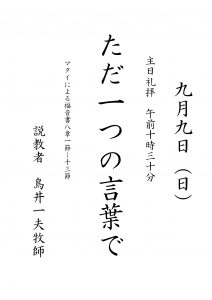 九月九日（日）
主日礼拝　午前十時三十分
ただ一つの言葉で
マタイによる福音書八章一節ー十三節
説教者　鳥井一夫牧師